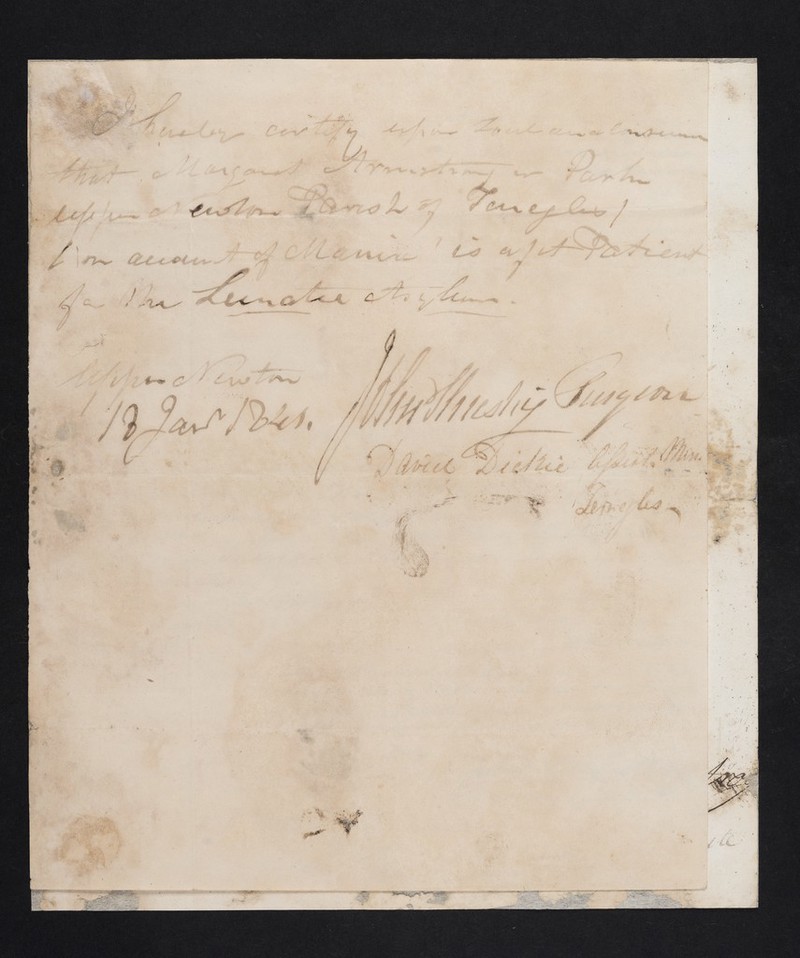 I hereby certify upon soul and conscience
that Margaret Armstrong or Park
upper Newton Parish of Terregles
on account of Mania is a fit Patient
for the Lunatic Asylum.
Upper Newton
18 Jany 1841. John Surgeon
David Dickie Assist. Min.
Terregles